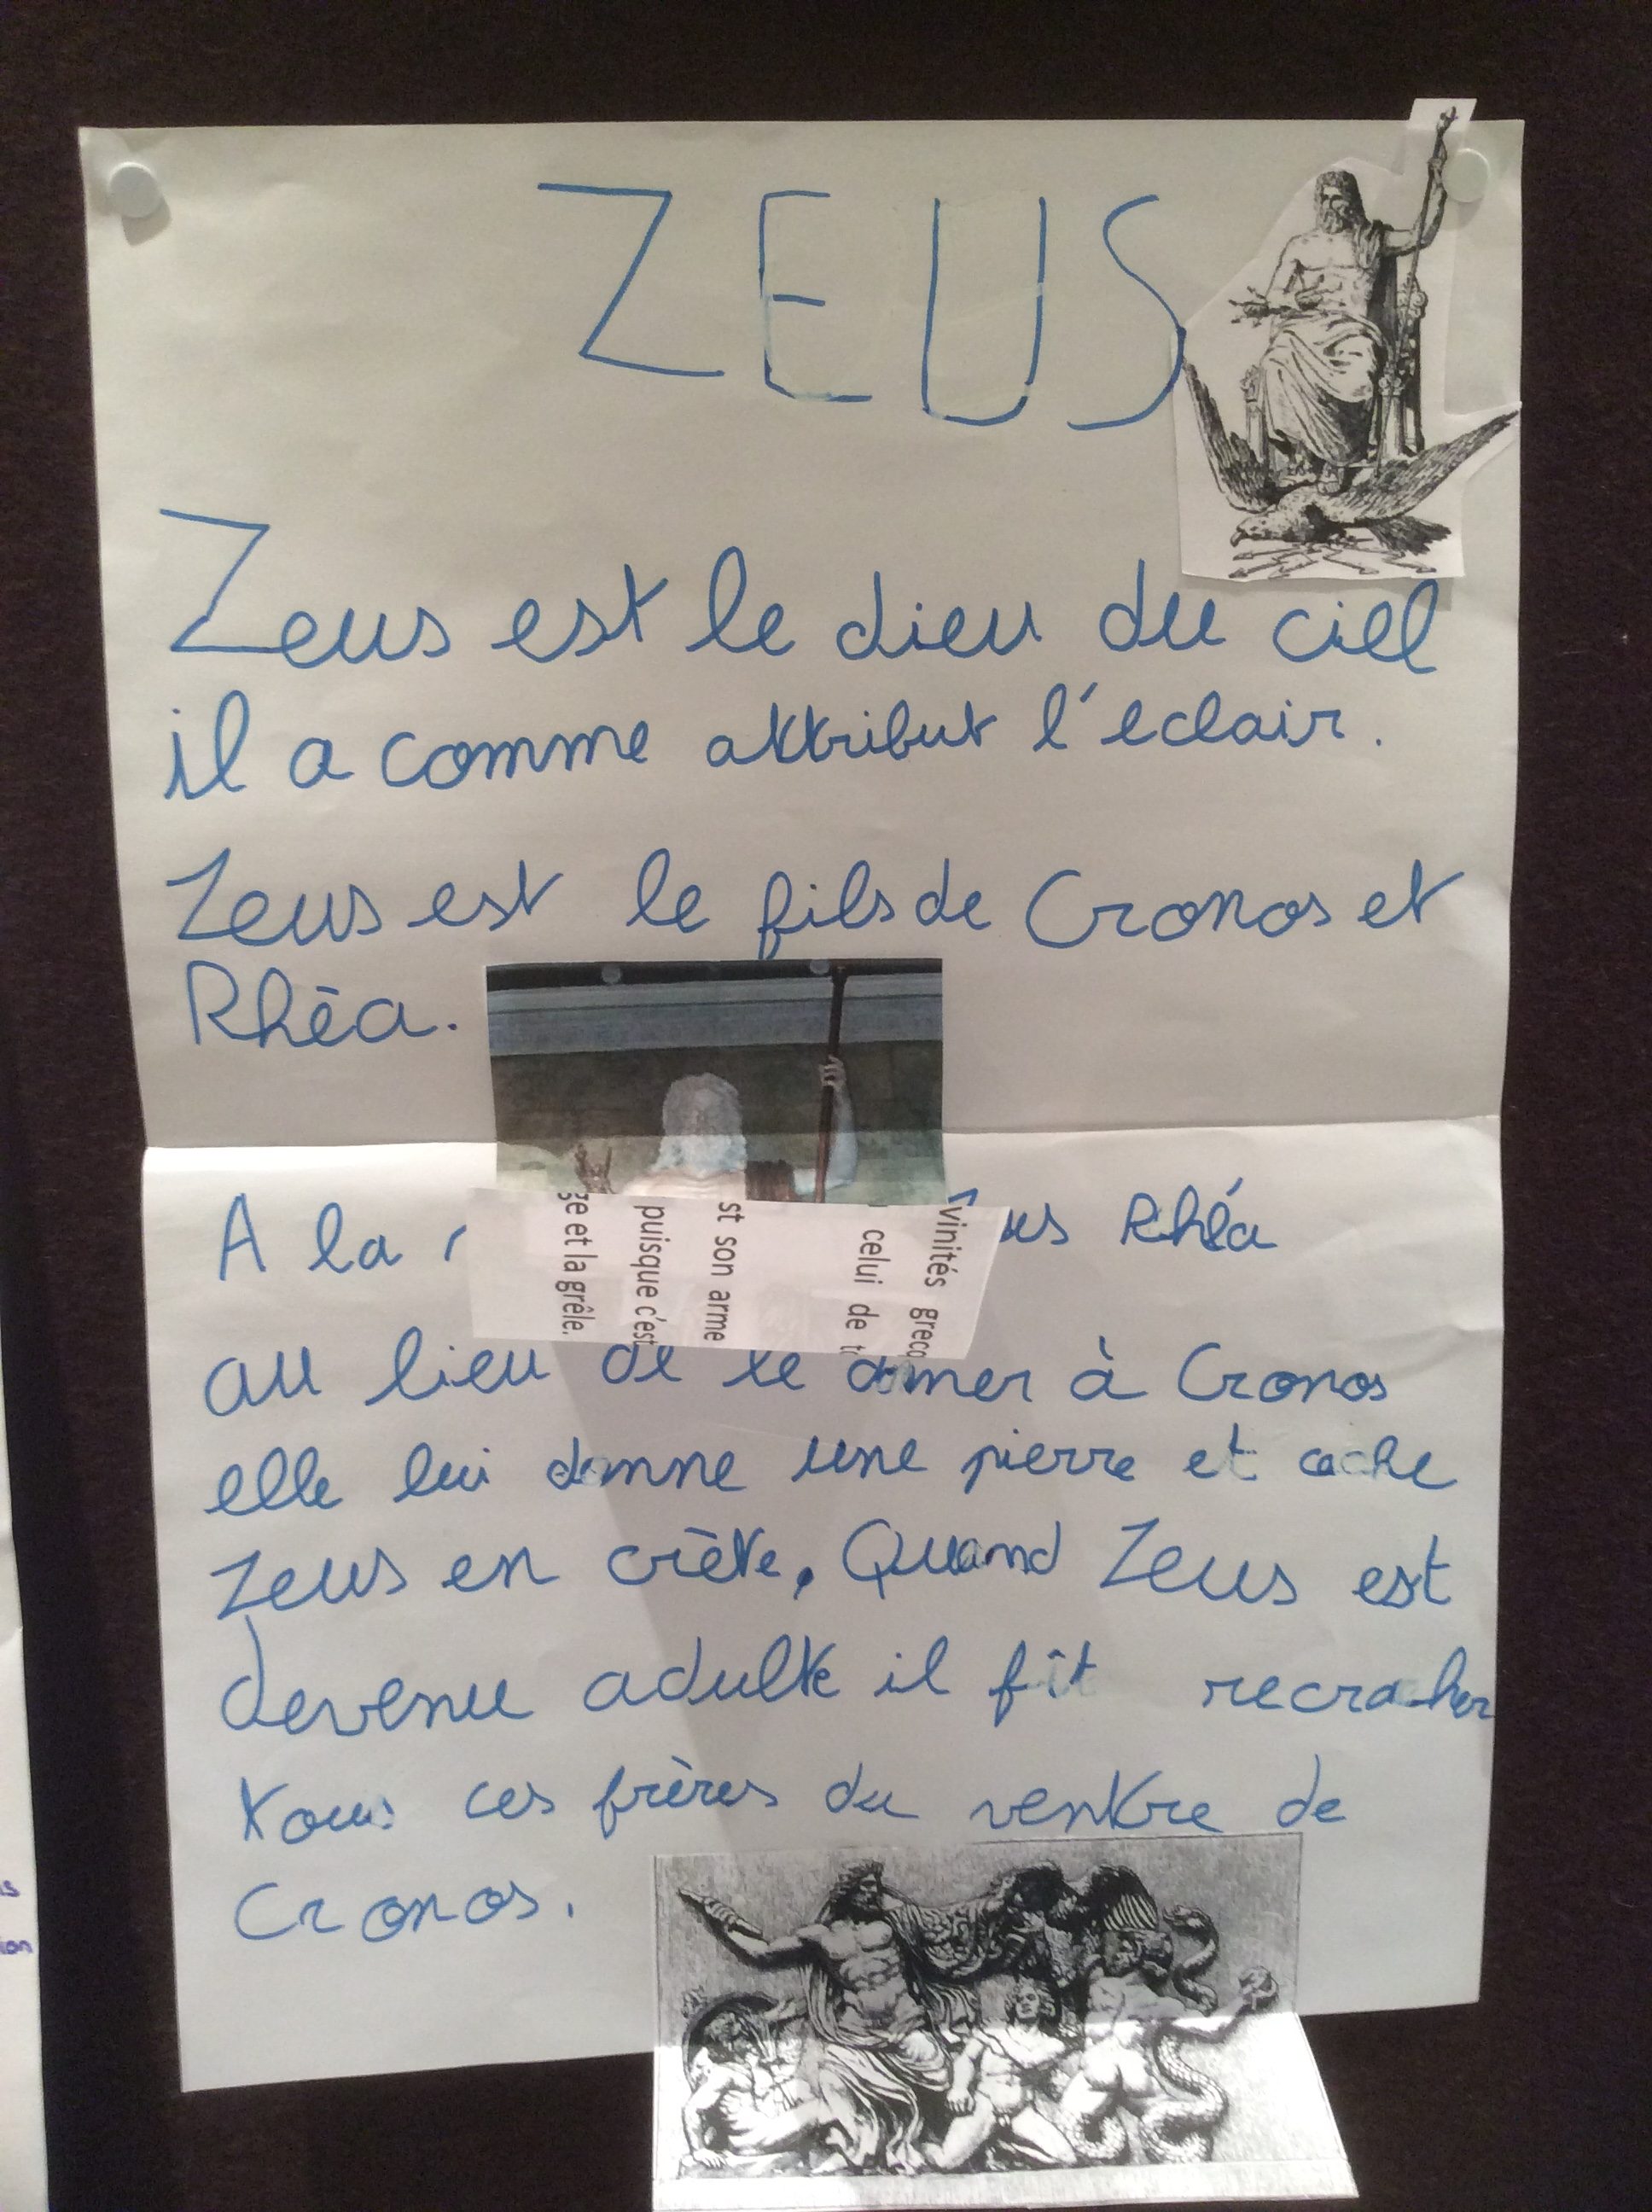 ZEUS
Zeus est le dieu du ciel
il a comme attribut l'eclair.
Zeus est le fils de Cronos et
Rhéa.
A la
Rhéa
vinités grec
celui de
st son arme
puisque c'est
ge et la grêle.
au lieu de le donner à Cronos
elle lui donne une pierre et cache
Zeus en crète. Quand Zeus est
devenu adulte il fît recracher
tous ces frères du ventre de
Cronos.